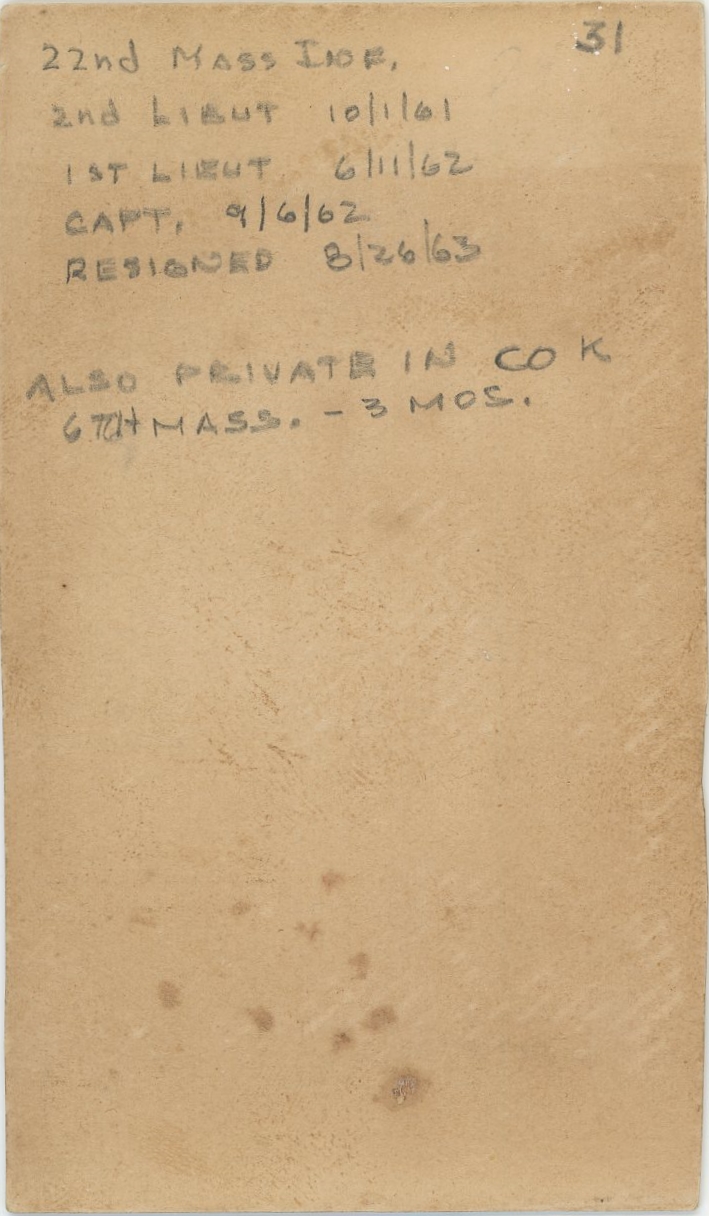 31
22nd MASS INF.
2nd LIEUT 10/1/61
1ST LIEUT. 6/11/62
CAPT. 9/6/62
RESIGNED 8/26/63
ALSO PRIVATE IN CO K
6TH MASS. - 3 MOS.